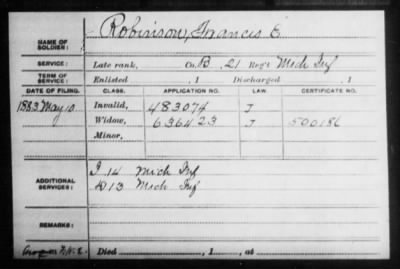 NAME OF SOLDIER: Robinson, Francis E.
SERVICE: Late rank, Co. B, 21 Reg't Mich Inf
TERM OF SERVICE: Enlisted , 1 Discharged , 1
DATE OF FILING. CLASS. APPLICATION NO. LAW. CERTIFICATE NO.
1883 May 10 Invalid, 483074 J
Widow, 636423 J 500186
Minor,
ADDITIONAL SERVICES: I 14 Mich Inf
D 13 Mich Inf
REMARKS:
Died , 1 , at